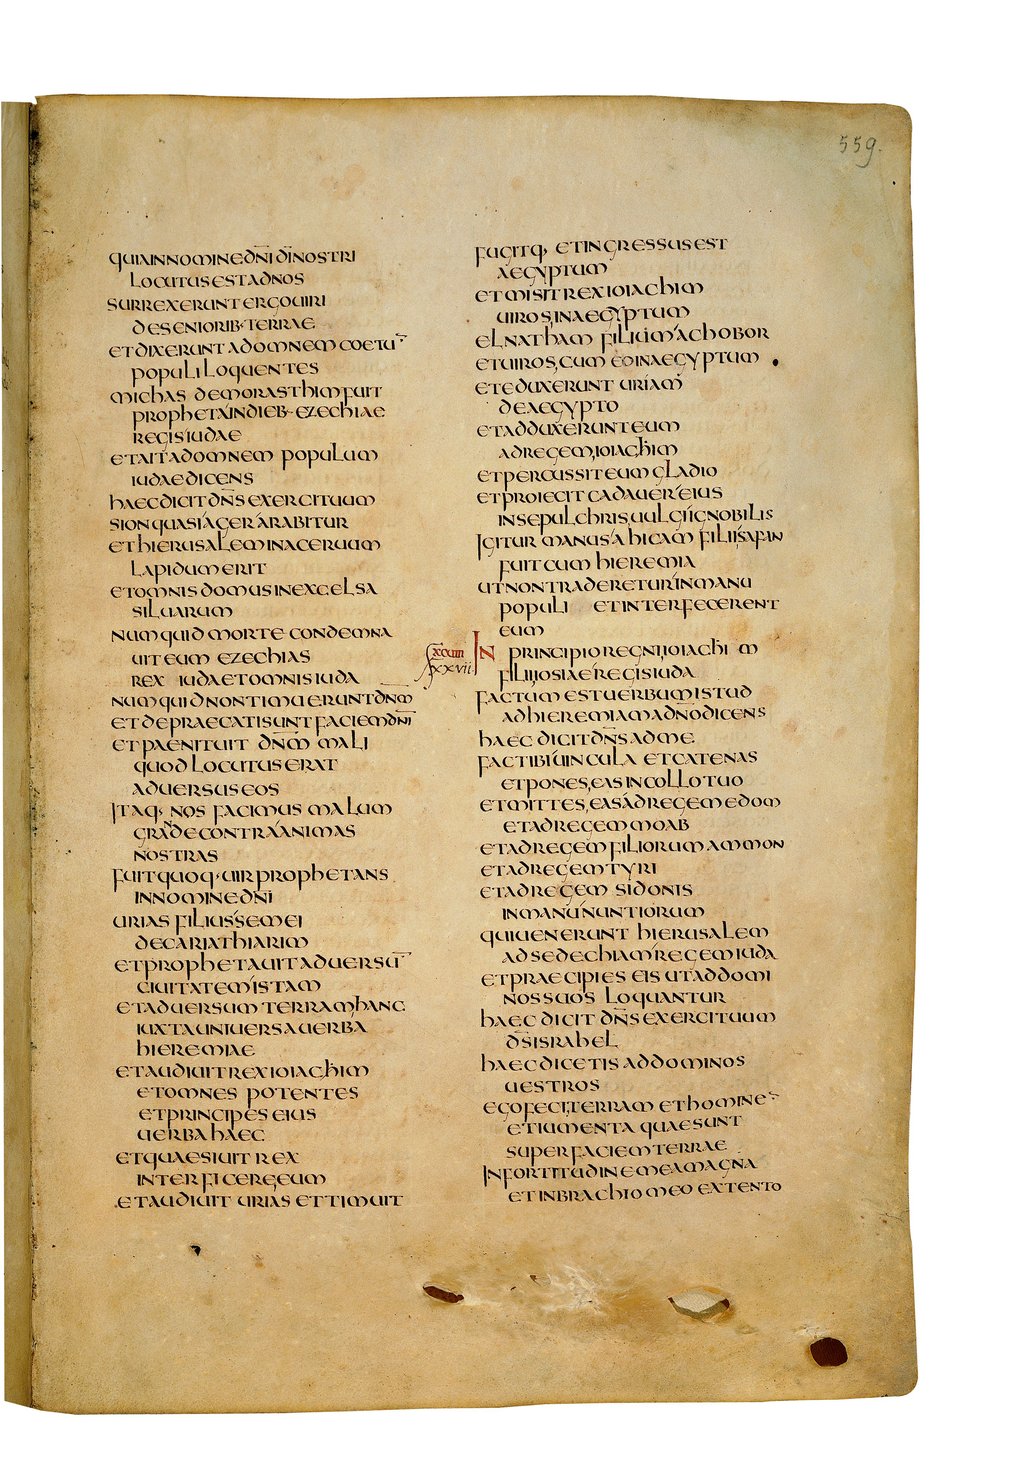 559.
QUIAINNOMINEDNĪ DĪNOSTRI
LOCUTUSESTADNOS
SURREXERUNTERGOUIRI
DESENIORIB·TERRAE
ETDIXERUNTADOMNEMCOETŪ
POPULILOQUENTES
MICHAS DEMORASTHIMFUIT
PROPHETAINDIEB·EZECHIAE
REGISIUDAE
ETAITADOMNEM POPULUM
IUDAEDICENS
HAECDICITDN̄SEXERCITUUM
SIONQUASIAGERARABITUR
ETHIERUSALEMINACERUUM
LAPIDUMERIT
ETOMNISDOMUSINEXCELSA
SILUARUM
NUMQUIDMORTE CONDEMNA
UITEUM EZECHIAS
REX IUDAETOMNISIUDA
NUMQUIDNONTIMUERUNTDNM̄
ETDEPRAECATISUNTFACIEMDNĪ
ETPAENITUIT DNM̄ MALI
QUODLOCUTUSERAT
ADUERSUSEOS
ITAQ· NOS FACIMUS MALUM
GRANDECONTRAANIMAS
NOSTRAS
FUITQUOQ·UIRPROPHETANS
INNOMINEDNĪ
URIAS FILIUSSEMEI
DECARIATHIARIM
ETPROPHETAUITADUERSŪ
CIUITATEMISTAM
ETADUERSUMTERRAMHANC
IUXTAUNIUERSAUERBA
HIEREMIAE
ETAUDIUITREXIOIACHIM
ETOMNES POTENTES
ETPRINCIPESEIUS
UERBAHAEC
ETQUAESIUITREX
INTERFICEREEUM
ETAUDIUIT URIAS ETTIMUIT
FUGITQ· ETINGRESSUSEST
AEGYPTUM
ETMISITREXIOIACHIM
UIROSINAEGYPTUM
ELNATHAM FILIUMACHOBOR
ETUIROSCUM EOINAEGYPTUM
ETEDUXERUNT URIAM
DEAEGYPTO
ETADDUXERUNTEUM
ADREGEMIOIACHIM
ETPERCUSSITEUMGLADIO
ETPROIECITCADAUEREIUS
INSEPULCHRISUULGIIGNOBILIS
IGITUR MANUSAHICAM FILIISAFAN
FUITCUMHIEREMIA
UTNONTRADERETURINMANU
POPULI ETINTERFECERENT
EUM
XXVII
IN PRINCIPIOREGNIIOIACHIM
FILIIIOSIAEREGISIUDA
FACTUMESTUERBUMISTUD
ADHIEREMIAMADNŌDICENS
HAEC DICITDN̄SADME
FACTIBIUINCULA ETCATENAS
ETPONESEASINCOLLOTUO
ETMITTESEASADREGEMEDOM
ETADREGEMMOAB
ETADREGEMFILIORUMAMMON
ETADREGEMTYRI
ETADREGEM SIDONIS
INMANUNUNTIORUM
QUIUENERUNT HIERUSALEM
ADSEDECHIAMREGEMIUDA
ETPRAECIPIES EIS UTADDOMI
NOSSUOS LOQUANTUR
HAEC DICIT DN̄SEXERCITUUM
DS̄ISRAHEL
HAECDICETISADDOMINOS
UESTROS
EGOFECITERRAM ETHOMINES
ETIUMENTA QUAESUNT
SUPERFACIEMTERRAE
INFORTITUDINEMEAMAGNA
ETINBRACHIOMEO EXTENTO